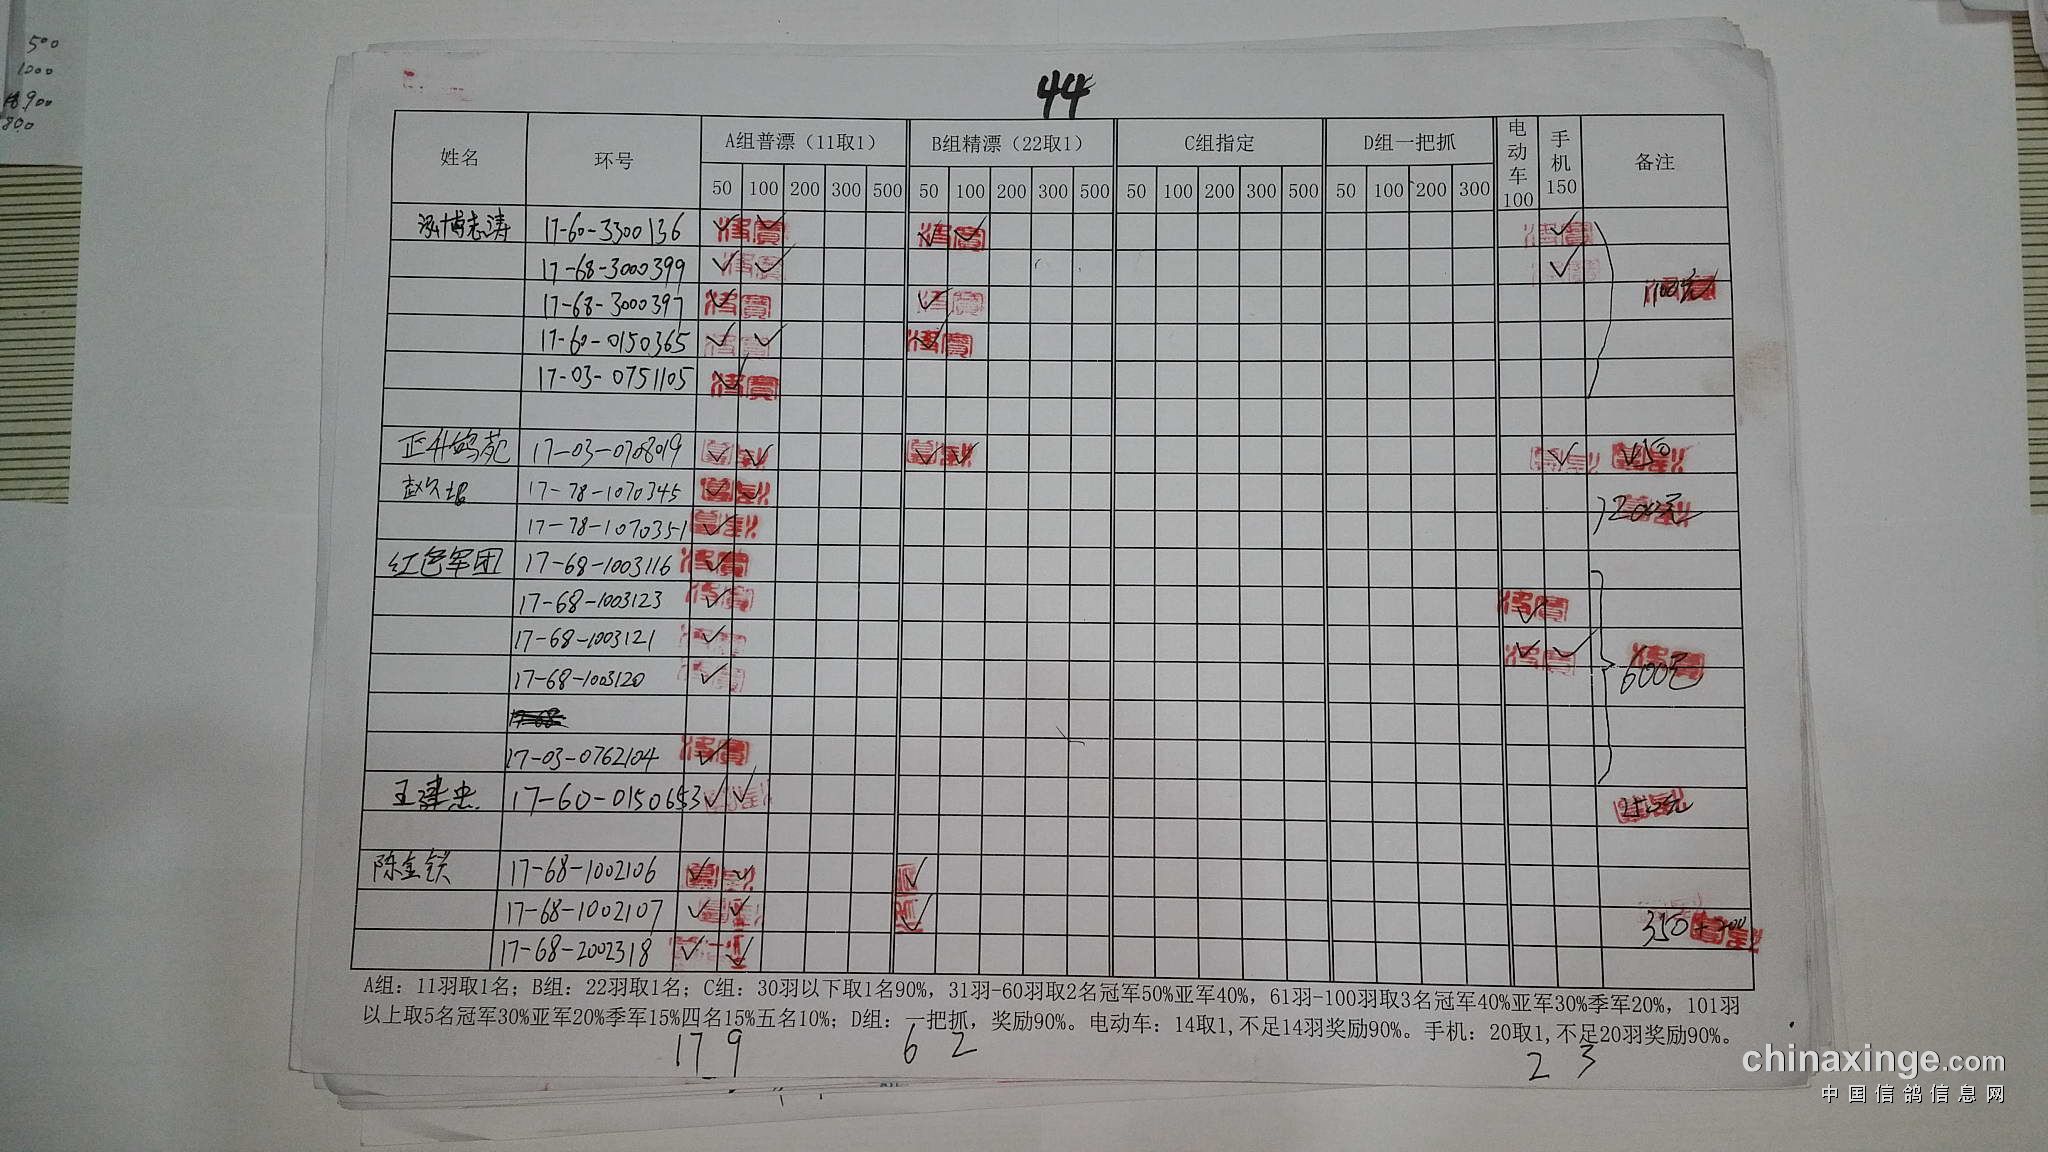 500
1000
800
44
姓名 环号 A组普漂（11取1） B组精漂（22取1） C组指定 D组一把抓 电动车100 手机150 备注
50 100 200 300 500 50 100 200 300 500 50 100 200 300 500 50 100 200 300
泓博志涛 17-60-3300136 ✓ ✓ ✓ ✓ ✓
17-68-3000399 ✓ ✓ ✓
17-68-3000397 ✓ ✓ 1100元
17-60-0150365 ✓ ✓ ✓
17-03-0751105 ✓
正升鸽苑 17-03-0708019 ✓ ✓ ✓ ✓ ✓ 450
赵久 17-78-1070345 ✓ ✓
17-78-1070351 ✓ 200元
红色军团 17-68-1003116 ✓
17-68-1003123 ✓ ✓
17-68-1003121 ✓ ✓ ✓
17-68-1003120 ✓ 600元
17-03-0762104 ✓
王建忠 17-60-0150653 ✓ ✓
陈金铁 17-68-1002106 ✓ ✓ ✓
17-68-1002107 ✓ ✓ ✓ 350+200
17-68-2002318 ✓ ✓
A组：11羽取1名；B组：22羽取1名；C组：30羽以下取1名90%，31羽-60羽取2名冠军50%亚军40%，61羽-100羽取3名冠军40%亚军30%季军20%，101羽
以上取5名冠军30%亚军20%季军15%四名15%五名10%；D组：一把抓，奖励90%。电动车：14取1,不足14羽奖励90%。手机：20取1,不足20羽奖励90%。
17 9 6 2 2 3
chinaxinge.com
中国信鸽信息网